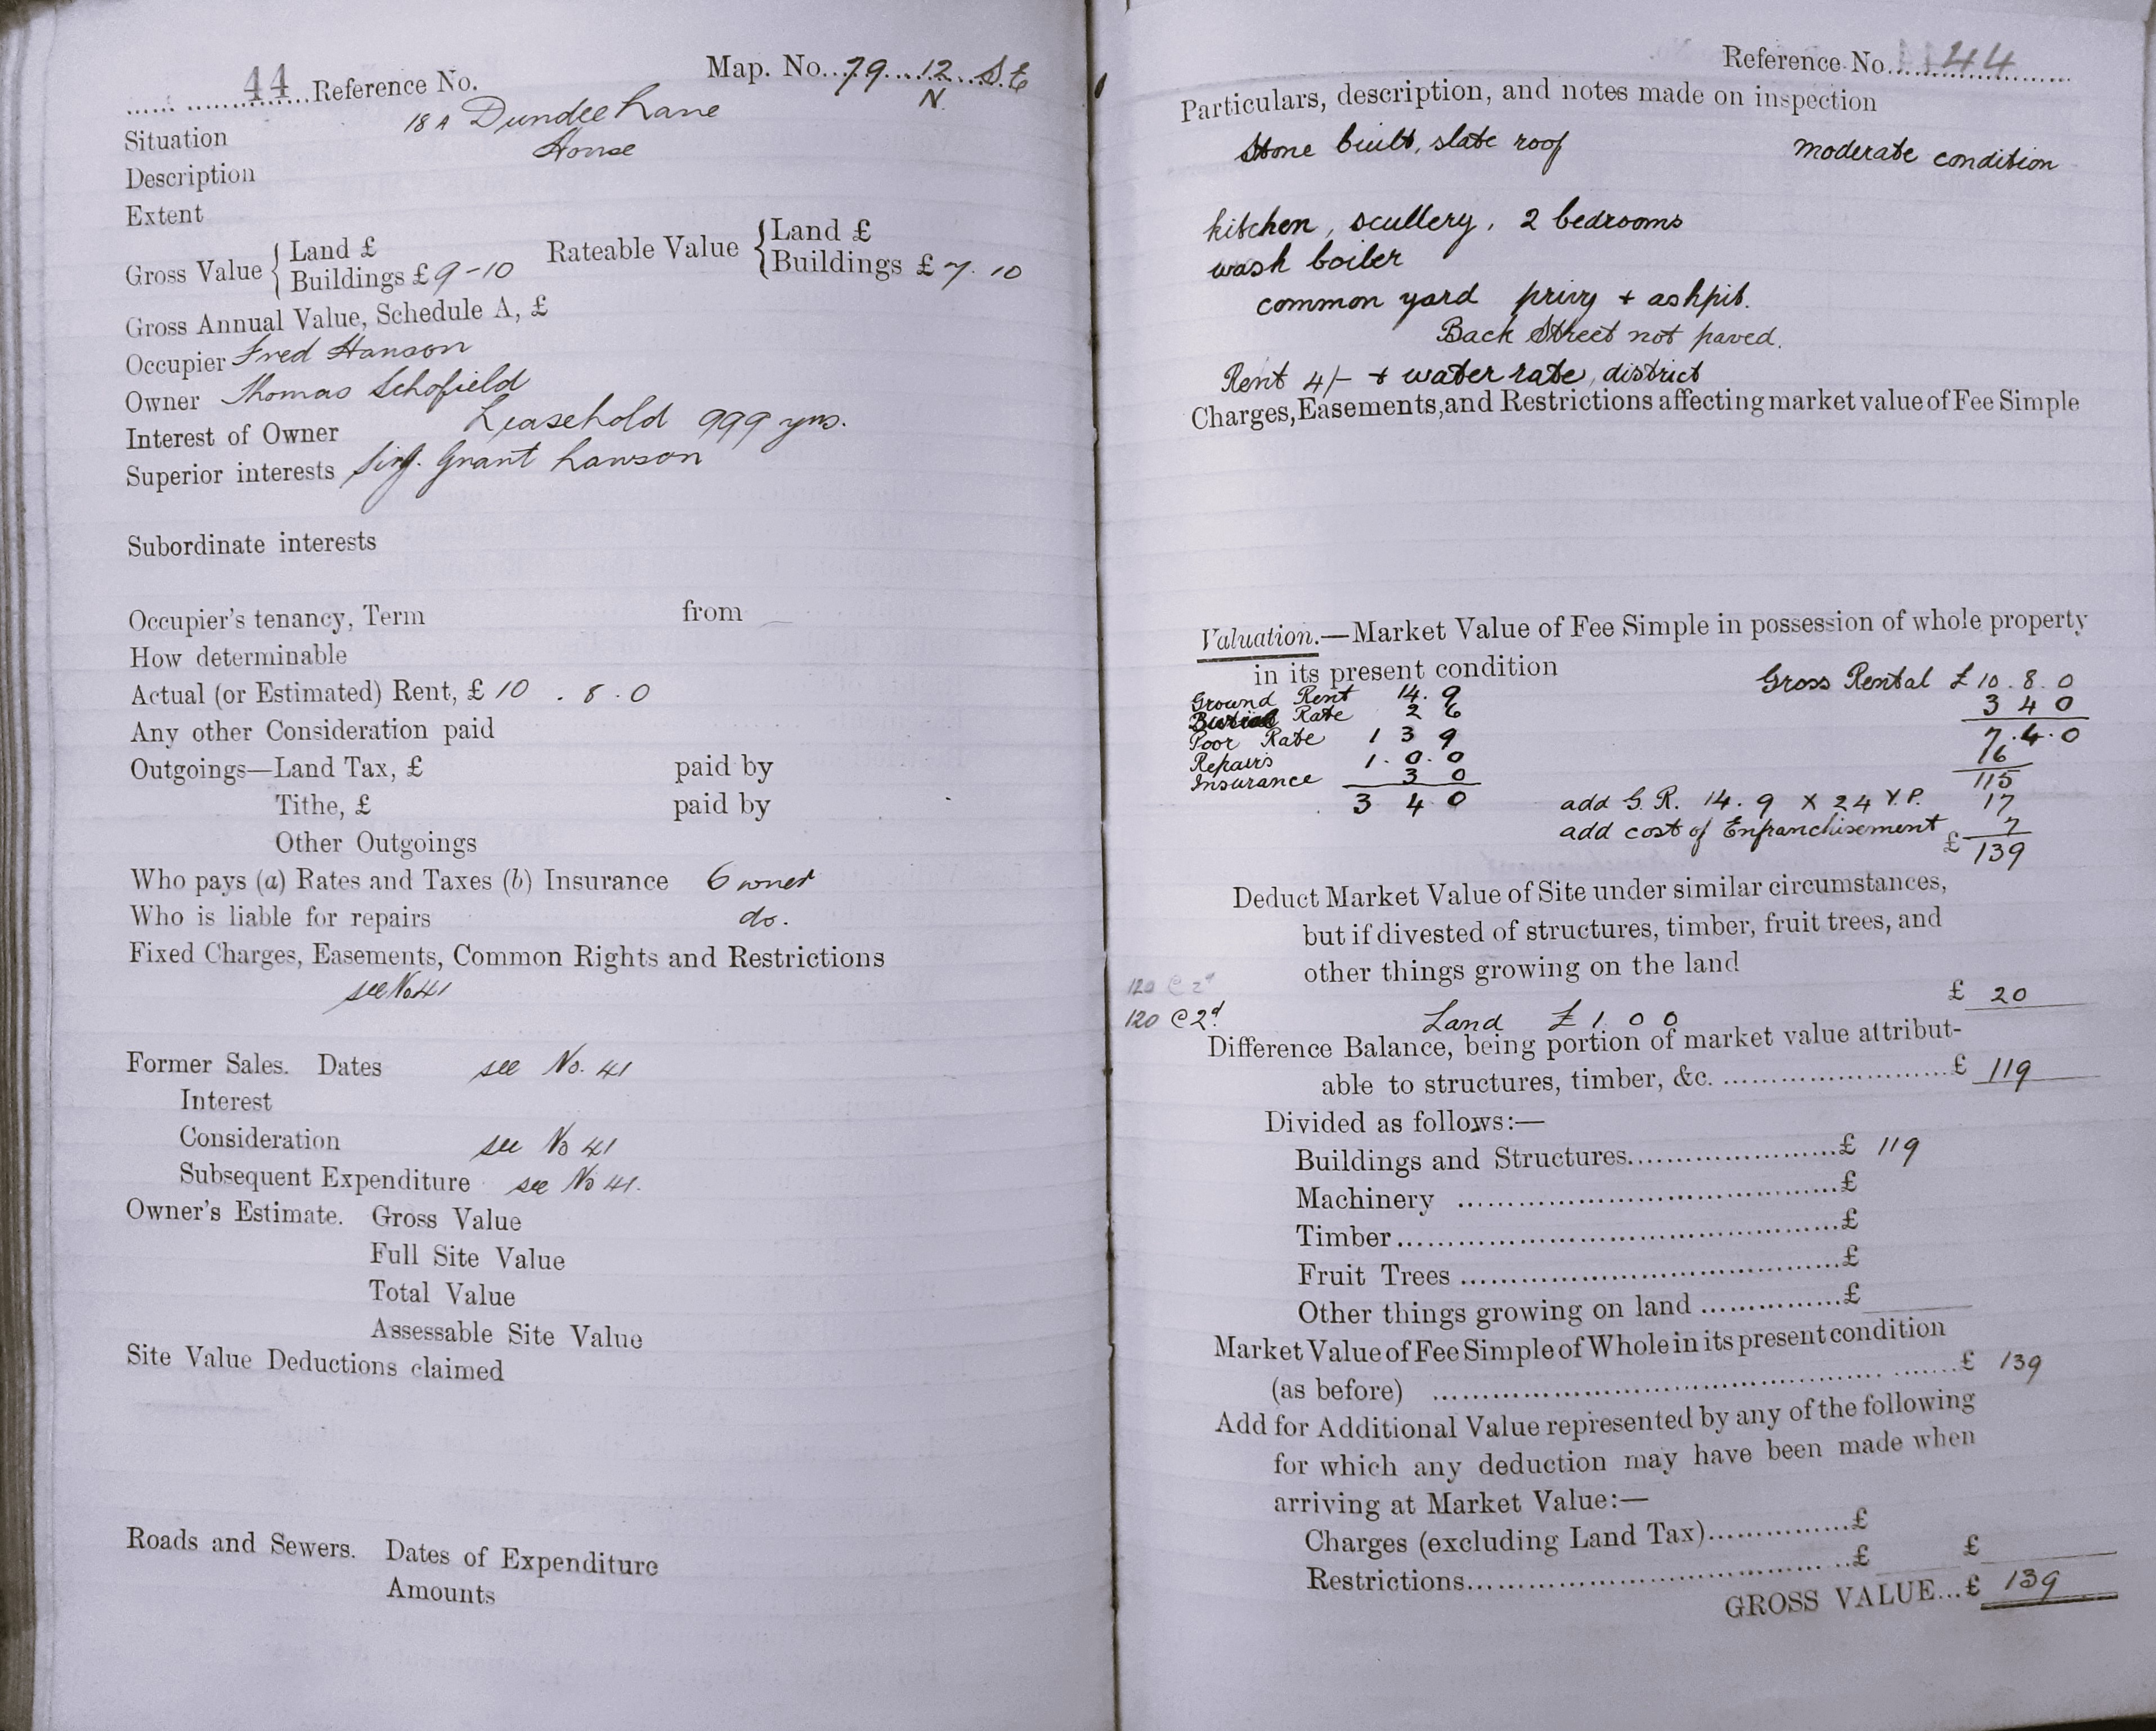 44 Reference No. Map. No. 79 12 S.E
N.
Situation 18A Dundee Lane
Description House
Extent
Gross Value { Land £
Buildings £ 9-10
Rateable Value { Land £
Buildings £ 7. 10
Gross Annual Value, Schedule A, £
Occupier Fred Hanson
Owner Thomas Schofield
Interest of Owner Leasehold 999 yrs.
Superior interests Grant Lawson
Subordinate interests
Occupier's tenancy, Term from
How determinable
Actual (or Estimated) Rent, £ 10 . 8 . 0
Any other Consideration paid
Outgoings—Land Tax, £ paid by
Tithe, £ paid by
Other Outgoings
Who pays (a) Rates and Taxes (b) Insurance Owner
Who is liable for repairs do.
Fixed Charges, Easements, Common Rights and Restrictions
see No 41
Former Sales. Dates see No. 41
Interest
Consideration see No 41
Subsequent Expenditure see No 41.
Owner's Estimate. Gross Value
Full Site Value
Total Value
Assessable Site Value
Site Value Deductions claimed
Roads and Sewers. Dates of Expenditure
Amounts
Reference No. 44
Particulars, description, and notes made on inspection
Stone built, slate roof moderate condition
kitchen, scullery, 2 bedrooms
wash boiler
common yard privy + ashpit.
Back Street not paved.
Rent 4/- + water rate, district
Charges, Easements, and Restrictions affecting market value of Fee Simple
Valuation.—Market Value of Fee Simple in possession of whole property
in its present condition
Gross Rental £ 10 . 8 . 0
Ground Rent 14. 9
3 4 0
Rate 2 6
7. 4. 0
Poor Rate 1 3 9
16
Repairs 1. 0. 0
115
Insurance 3 0
3 4 0
add G.R. 14. 9 X 24 Y.P. 17
add cost of Enfranchisement 7
£ 139
Deduct Market Value of Site under similar circumstances,
but if divested of structures, timber, fruit trees, and
other things growing on the land
120 @ 2d
£ 20
120 @ 2d.
Land £ 1 0 0
Difference Balance, being portion of market value attribut-
able to structures, timber, &c. £ 119
Divided as follows:—
Buildings and Structures £ 119
Machinery £
Timber £
Fruit Trees £
Other things growing on land £
Market Value of Fee Simple of Whole in its present condition
(as before) £ 139
Add for Additional Value represented by any of the following
for which any deduction may have been made when
arriving at Market Value:—
Charges (excluding Land Tax) £
Restrictions £ £
GROSS VALUE... £ 139